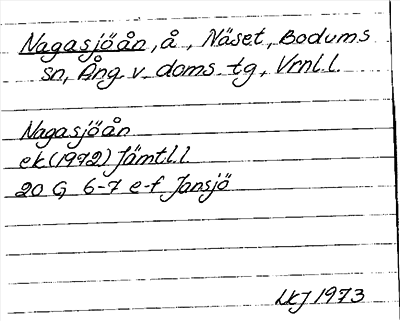 Nagasjöån, å, Näset, Bodums
sn, Ång. v. doms. tg, Vrnl.l.
Nagasjöån
ek (1972) Jämtl.l.
20 G 6-7 e-f Jansjö
LkJ 1973